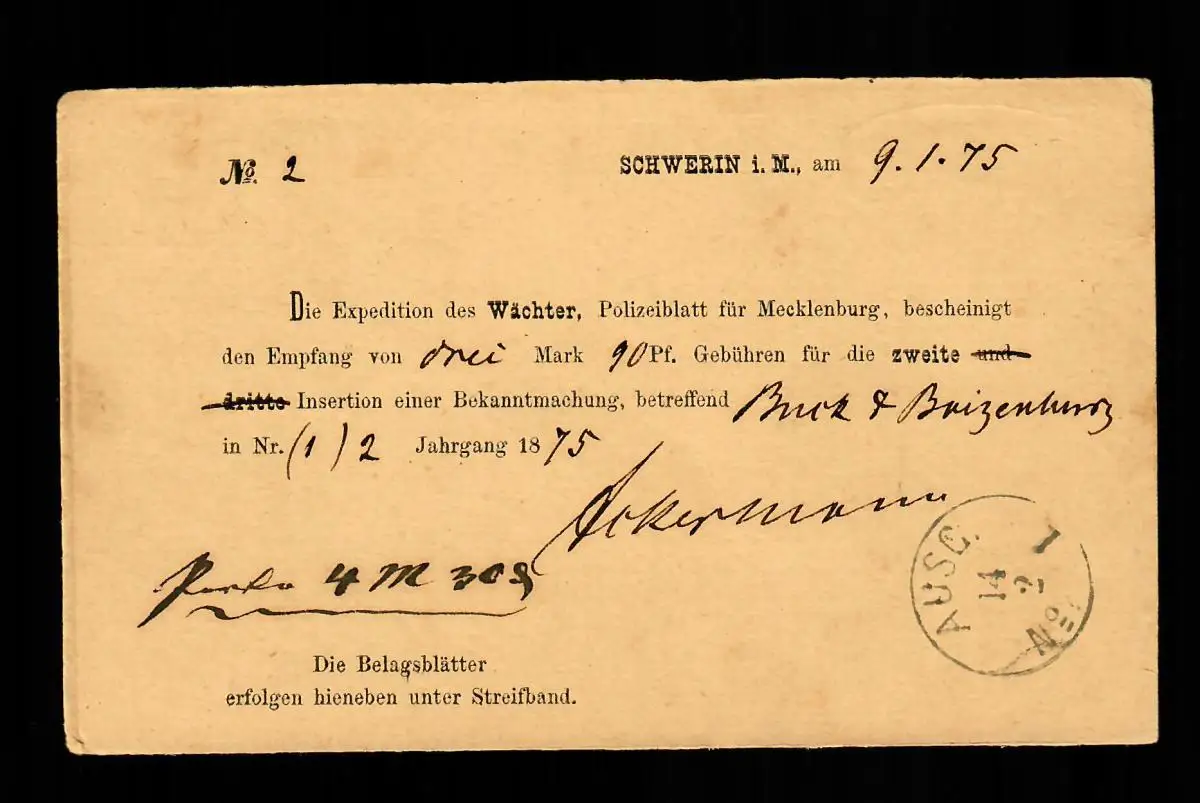 № 2 SCHWERIN i. M., am 9. 1. 75
Die Expedition des Wächter, Polizeiblatt für Mecklenburg, bescheinigt
den Empfang von drei Mark 90 Pf. Gebühren für die zweite und
dritte Insertion einer Bekanntmachung, betreffend Buck & Boizenburg
in Nr. (1) 2 Jahrgang 1875
Ackermann
Porto 4 M 30 ₰
AUSG. 14 2 No. 1
Die Belagsblätter
erfolgen hieneben unter Streifband.